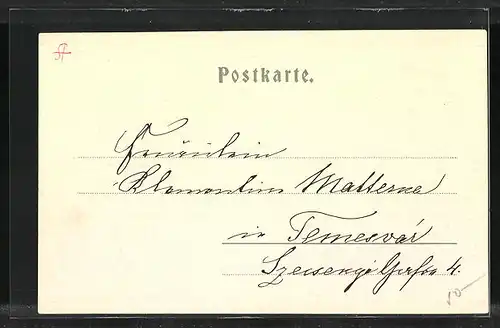 Postkarte.
Fräulein
Klementine Matterne
in Temesvár
Gasse 4.